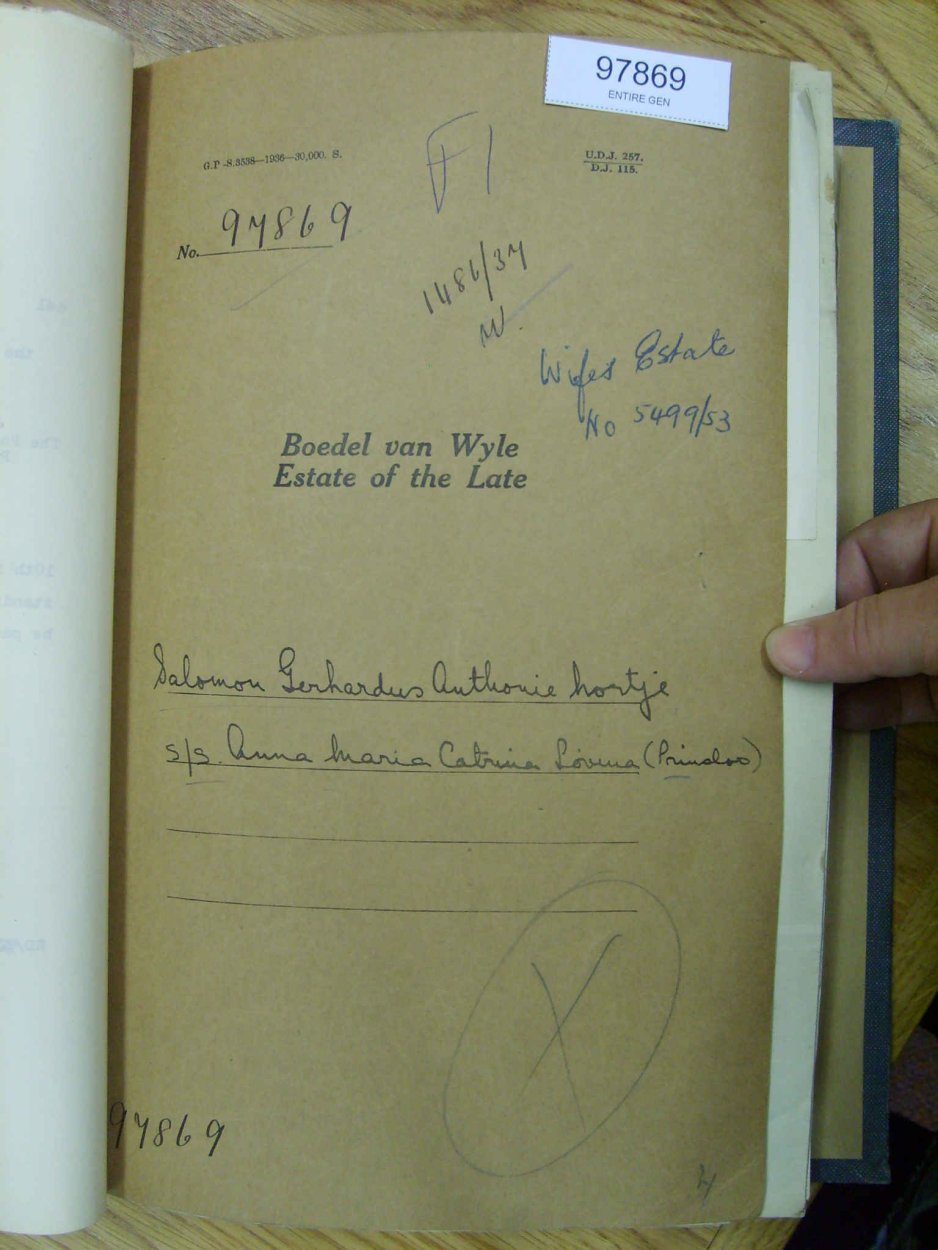 97869
ENTIRE GEN
G.P.-S.3538—1936—30,000. S.
F1
U.D.J. 257.
D.J. 115.
No. 97869
1486/37
W.
Wifes Estate
No 5499/53
Boedel van Wyle
Estate of the Late
Salomon Gerhardus Anthonie Kortje
s/s. Anna Maria Catrina Lovina (Prinsloo)
X
97869
the
The
10th
stand
be pa